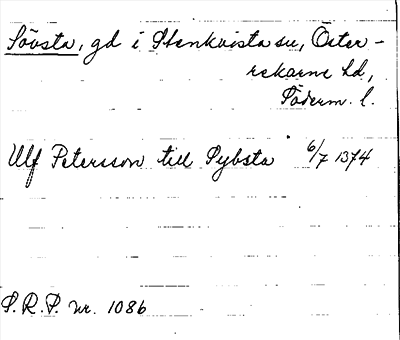 Sövsta, gd i Stenkvista sn, Öster-
rekarne hd,
Söderm. l.
Ulf Petersson till Sybsta 6/7 1374
S.R.P. nr. 1086